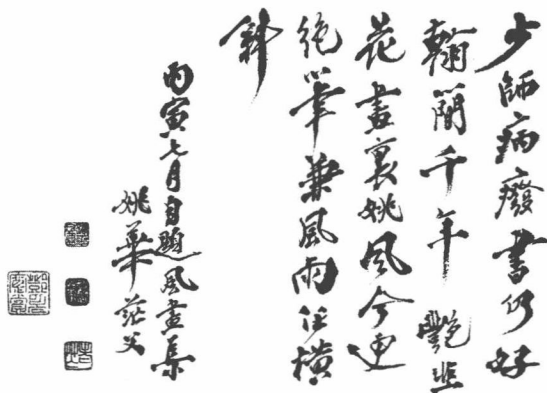 少師病廢書仍好
翰簡千年艷韭
花畫裏姚風今更
絶筆兼風雨任橫
斜
丙寅七月自題風畫集
姚華茫父